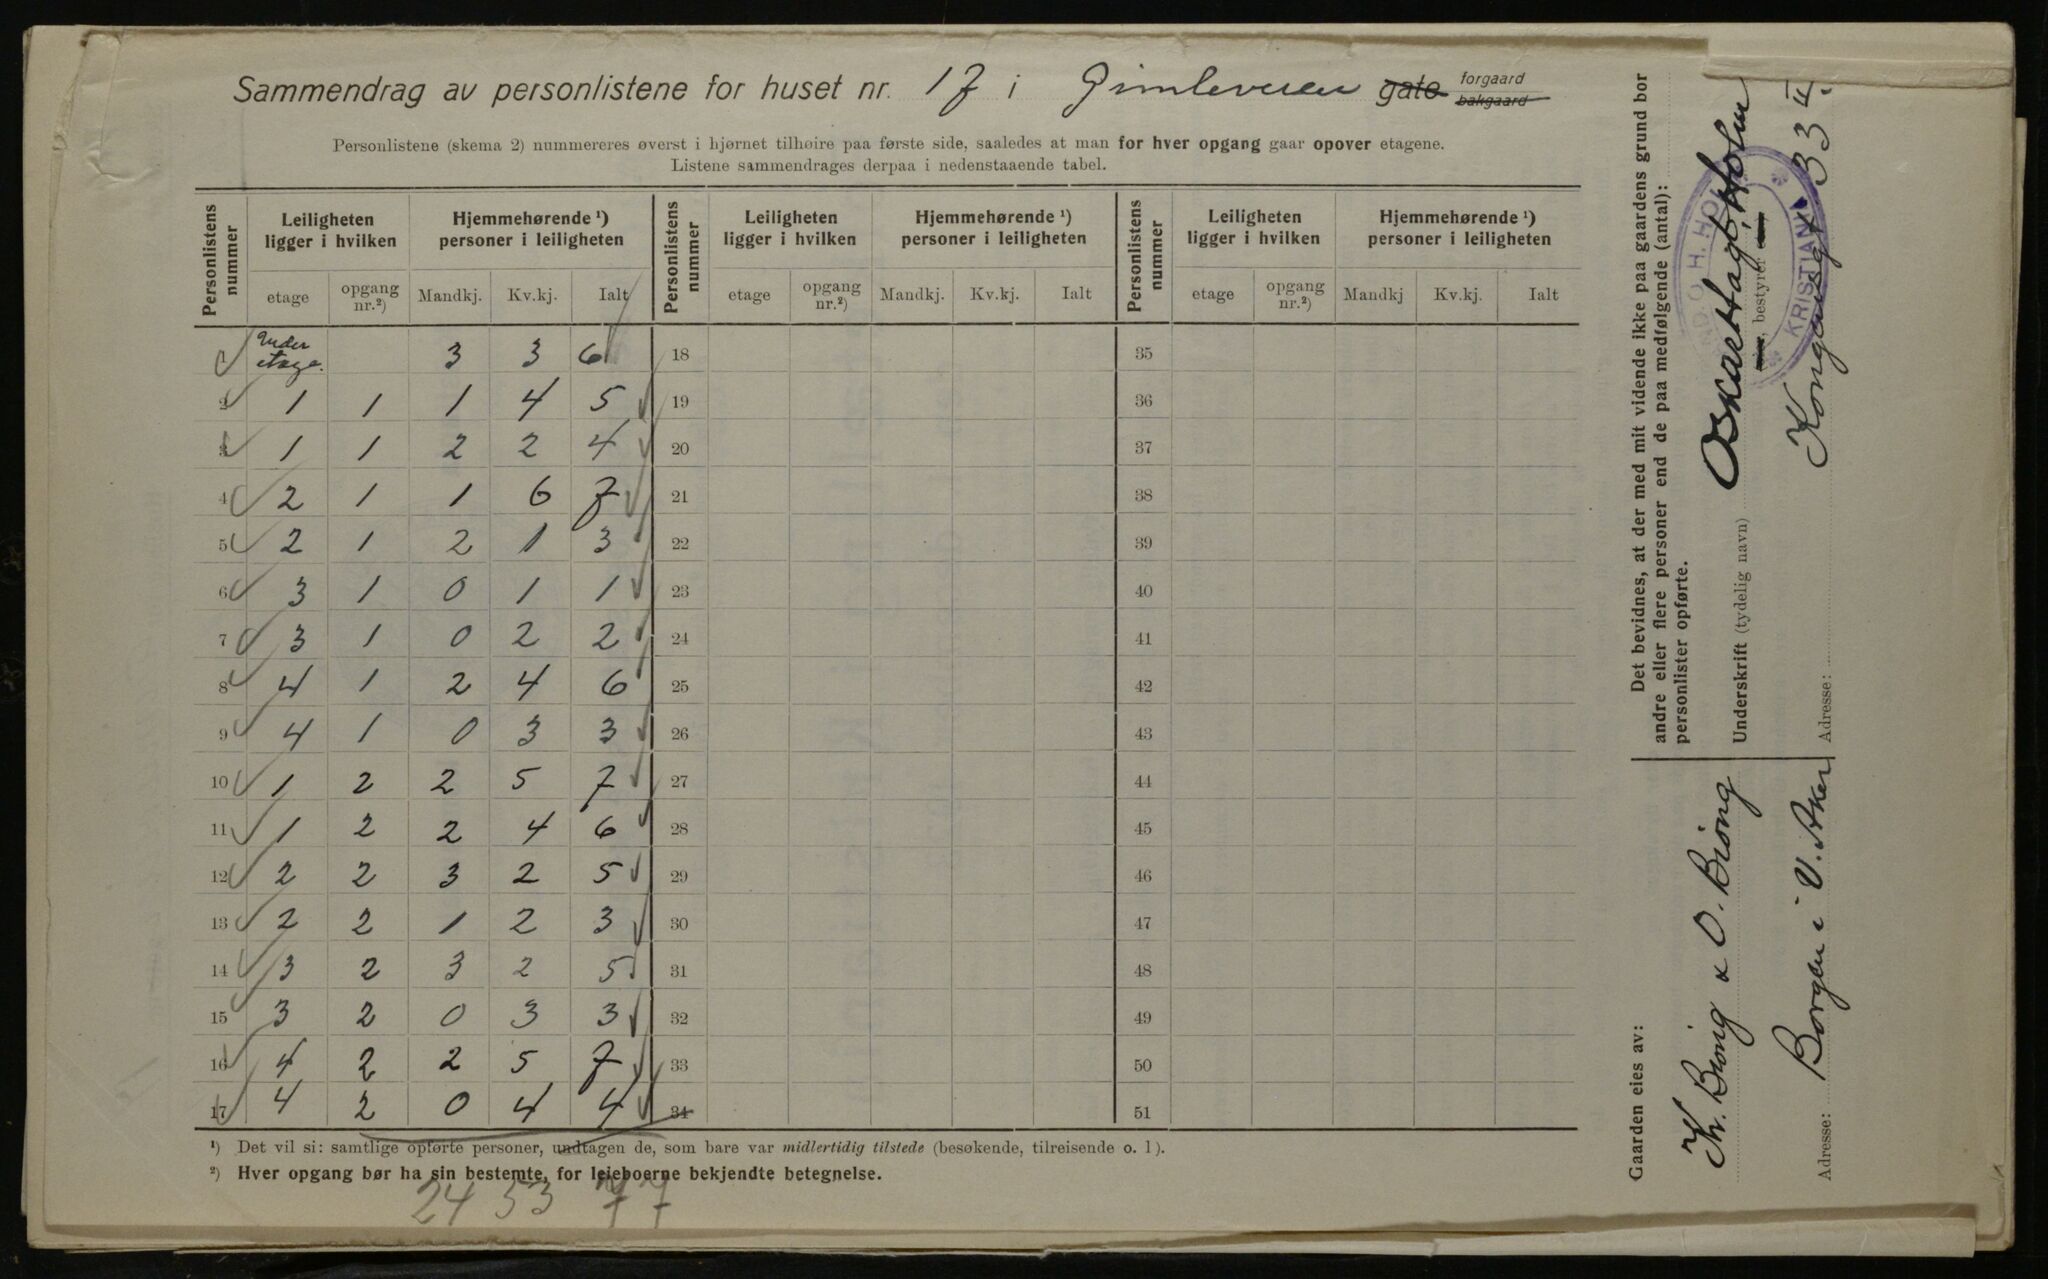 Sammendrag av personlistene for huset nr. 17 i Gimleveien gate forgaard bakgaard
Personlistene (skema 2) nummereres øverst i hjørnet tilhøire paa første side, saaledes at man for hver opgang gaar opover etagene.
Listene sammendrages derpaa i nedenstaaende tabel.
Personlistens nummer Leiligheten ligger i hvilken Hjemmehørende ¹) personer i leiligheten Personlistens nummer Leiligheten ligger i hvilken Hjemmehørende ¹) personer i leiligheten Personlistens nummer Leiligheten ligger i hvilken Hjemmehørende ¹) personer i leiligheten
etage opgang nr.²) Mandkj. Kv.kj. Ialt etage opgang nr.²) Mandkj. Kv.kj. Ialt etage opgang nr.²) Mandkj Kv.kj. Ialt
1 Under etage. 3 3 6 18 35
2 1 1 1 4 5 19 36
3 1 1 2 2 4 20 37
4 2 1 1 6 7 21 38
5 2 1 2 1 3 22 39
6 3 1 0 1 1 23 40
7 3 1 0 2 2 24 41
8 4 1 2 4 6 25 42
9 4 1 0 3 3 26 43
10 1 2 2 5 7 27 44
11 1 2 2 4 6 28 45
12 2 2 3 2 5 29 46
13 2 2 1 2 3 30 47
14 3 2 3 2 5 31 48
15 3 2 0 3 3 32 49
16 4 2 2 5 7 33 50
17 4 2 0 4 4 34 51
¹) Det vil si: samtlige opførte personer, undtagen de, som bare var midlertidig tilstede (besøkende, tilreisende o. l).
²) Hver opgang bør ha sin bestemte, for leieboerne bekjendte betegnelse.
24 53 77
Det bevidnes, at der med mit vidende ikke paa gaardens grund bor
andre eller flere personer end de paa medfølgende (antal):
personlister opførte.
Underskrift (tydelig navn) Oskar Hagb. Holm
, bestyrer
O. H. HO
KRISTIANIA
Adresse: Kongensgt 33 II
Gaarden eies av:
Chr. Biong & O. Biong
Adresse: Borgen i V. Aker